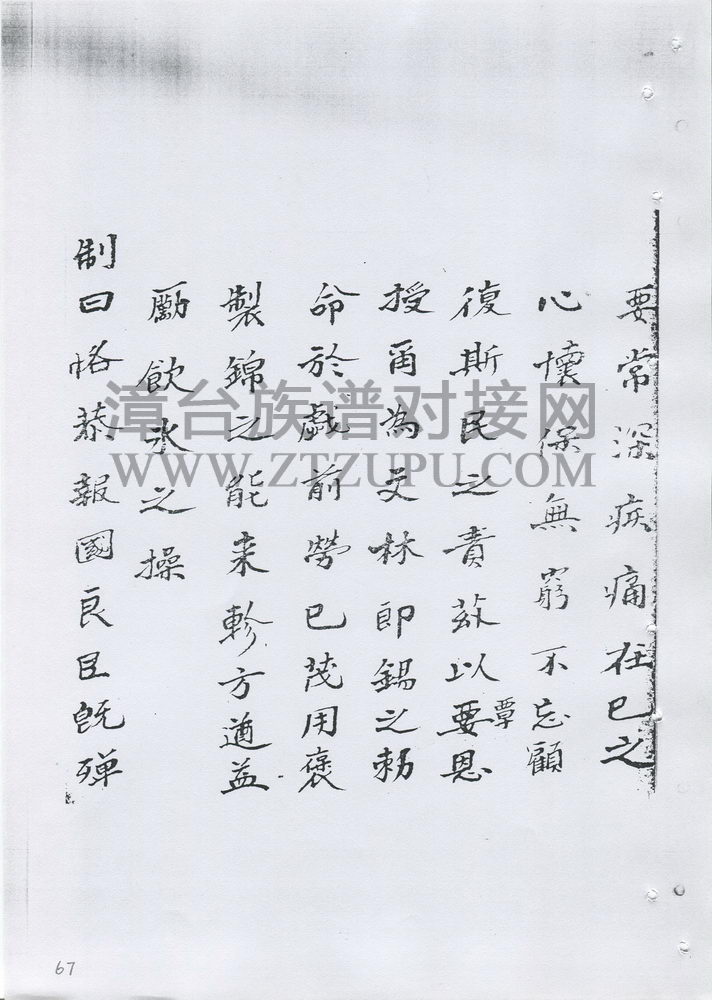 要常深疾痛在已之
心懷保無窮不忘顧
復斯民之責茲以要恩
覃
授爾為文林郎錫之勅
命於戲前勞已茂用褒
製錦之能来軫方遒益
勵飲氷之操
制曰恪恭報國良臣旣殫
漳台族谱对接网
WWW.ZTZUPU.COM
67